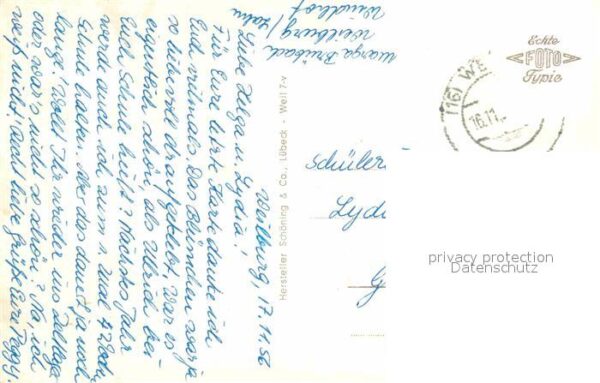 Marga Brübach
Weilburg / Lahn
Windhof
Weilburg, 17.11.56
Liebe Helga u. Lydia!
Für Eure liebe Karte danke ich
Euch vielmals. Das Blümchen war ja
so liebevoll draufgeklebt. War es
eigentlich schön, als Ulrich bei
Euch Schule hielt? Nächstes Jahr
werde auch ich zum 1. Mal
Schule halten. Aber das dauert ja noch
lange! Wollt Ihr wieder ins Zeltlager
oder war's nicht so schön? Na, ich
weiß nicht. Recht liebe Grüße Eure Peggy.
Hersteller Schöning & Co., Lübeck - Weil 7-v
Echte
FOTO
Typie
(16) WE
16.11.
Schüler
Lyd
G
privacy protection
Datenschutz